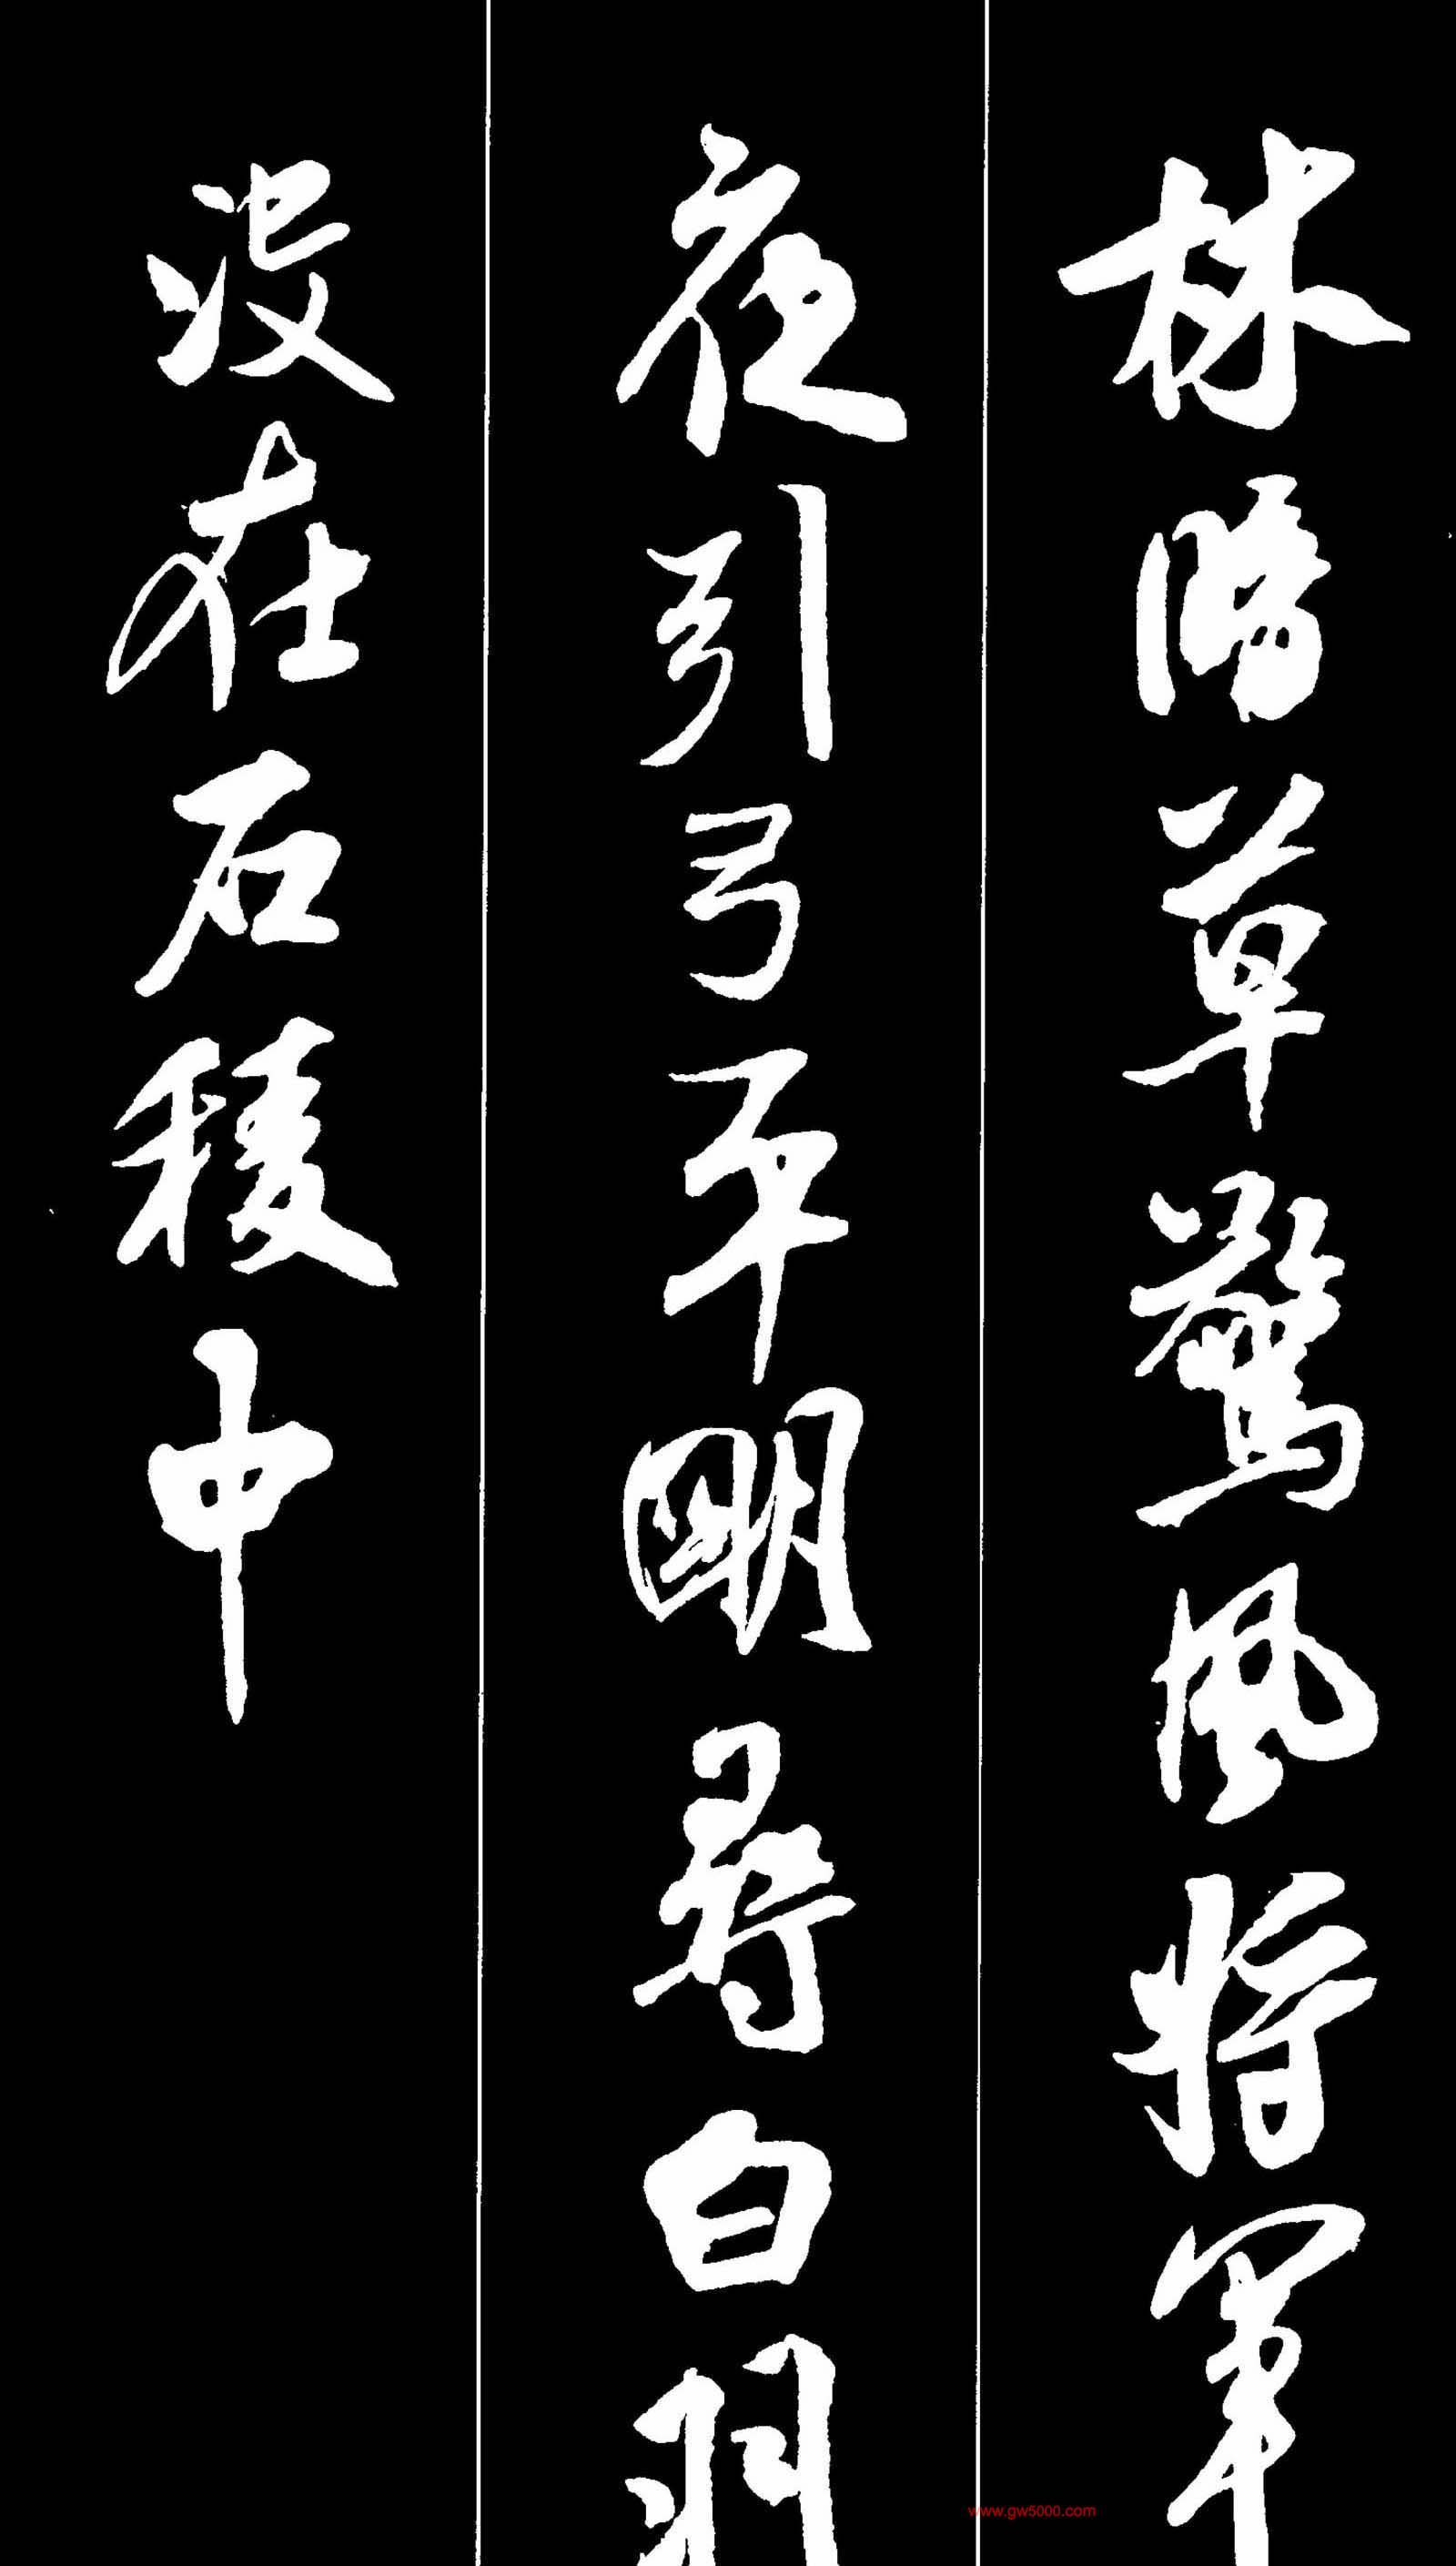 林暗草驚風將軍
夜引弓平明尋白羽
沒在石稜中
www.gw5000.com